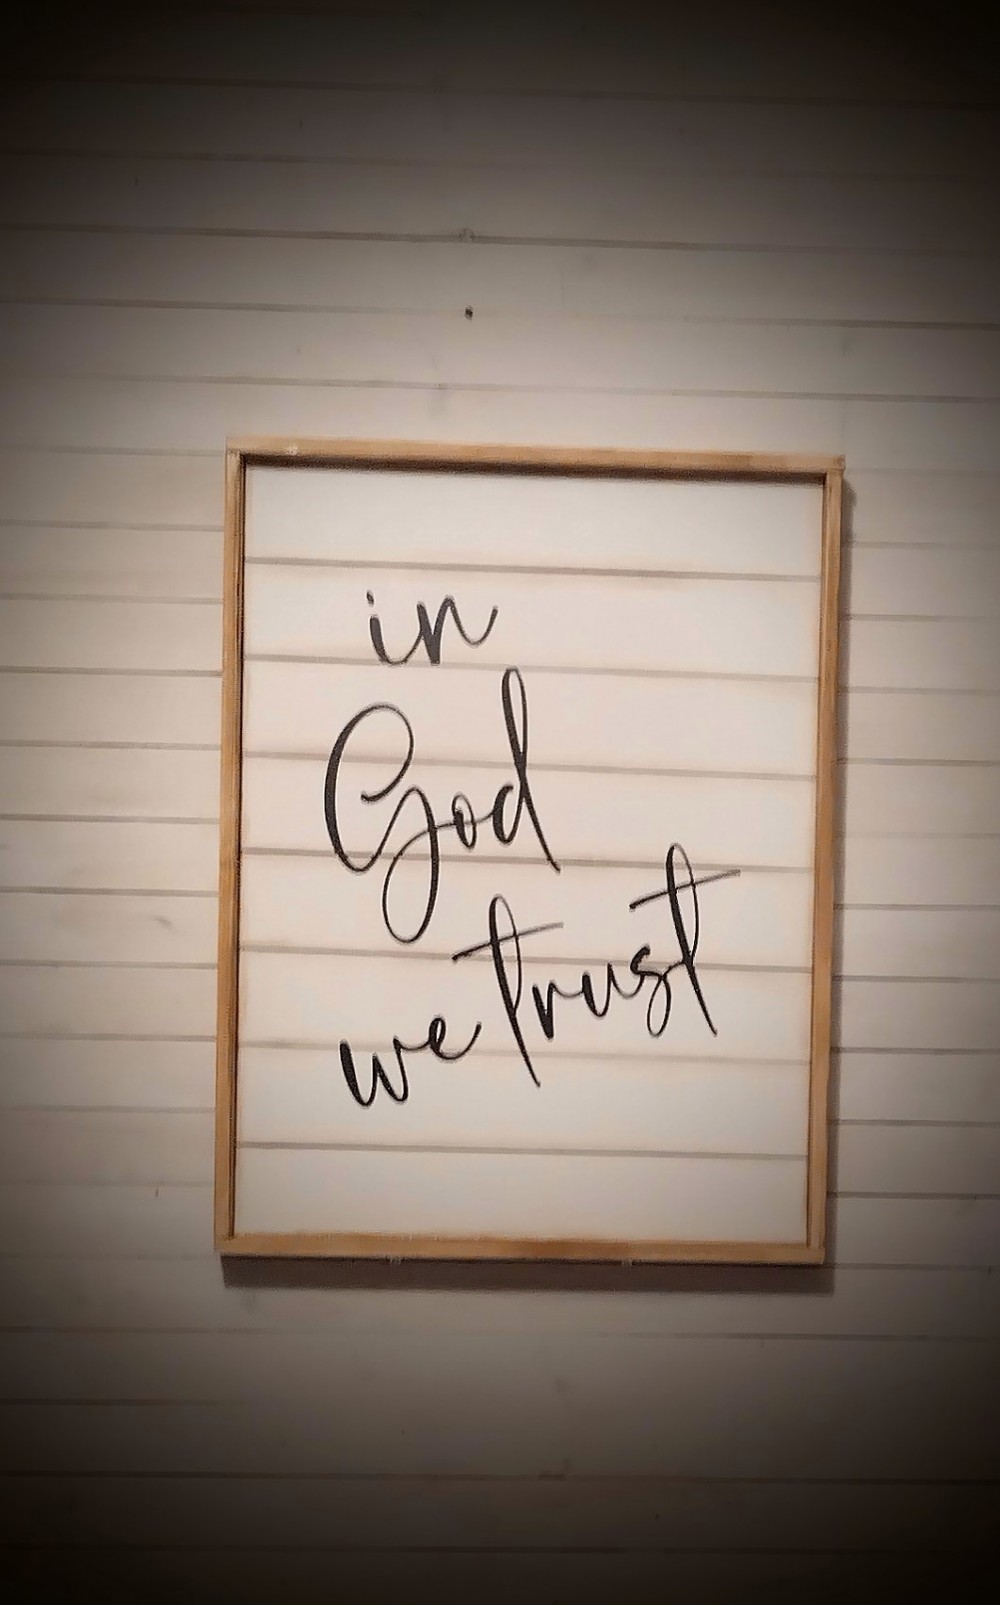 in
God
we trust